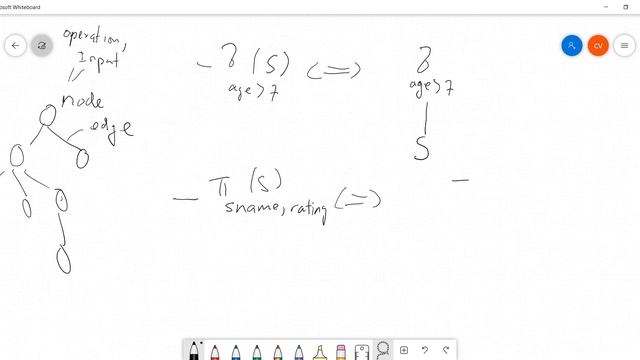 osoft Whiteboard
CV
operation,
Input
node
edge
(S) <=>
age>7
age>7
S
— π (S)
sname, rating <=>
—